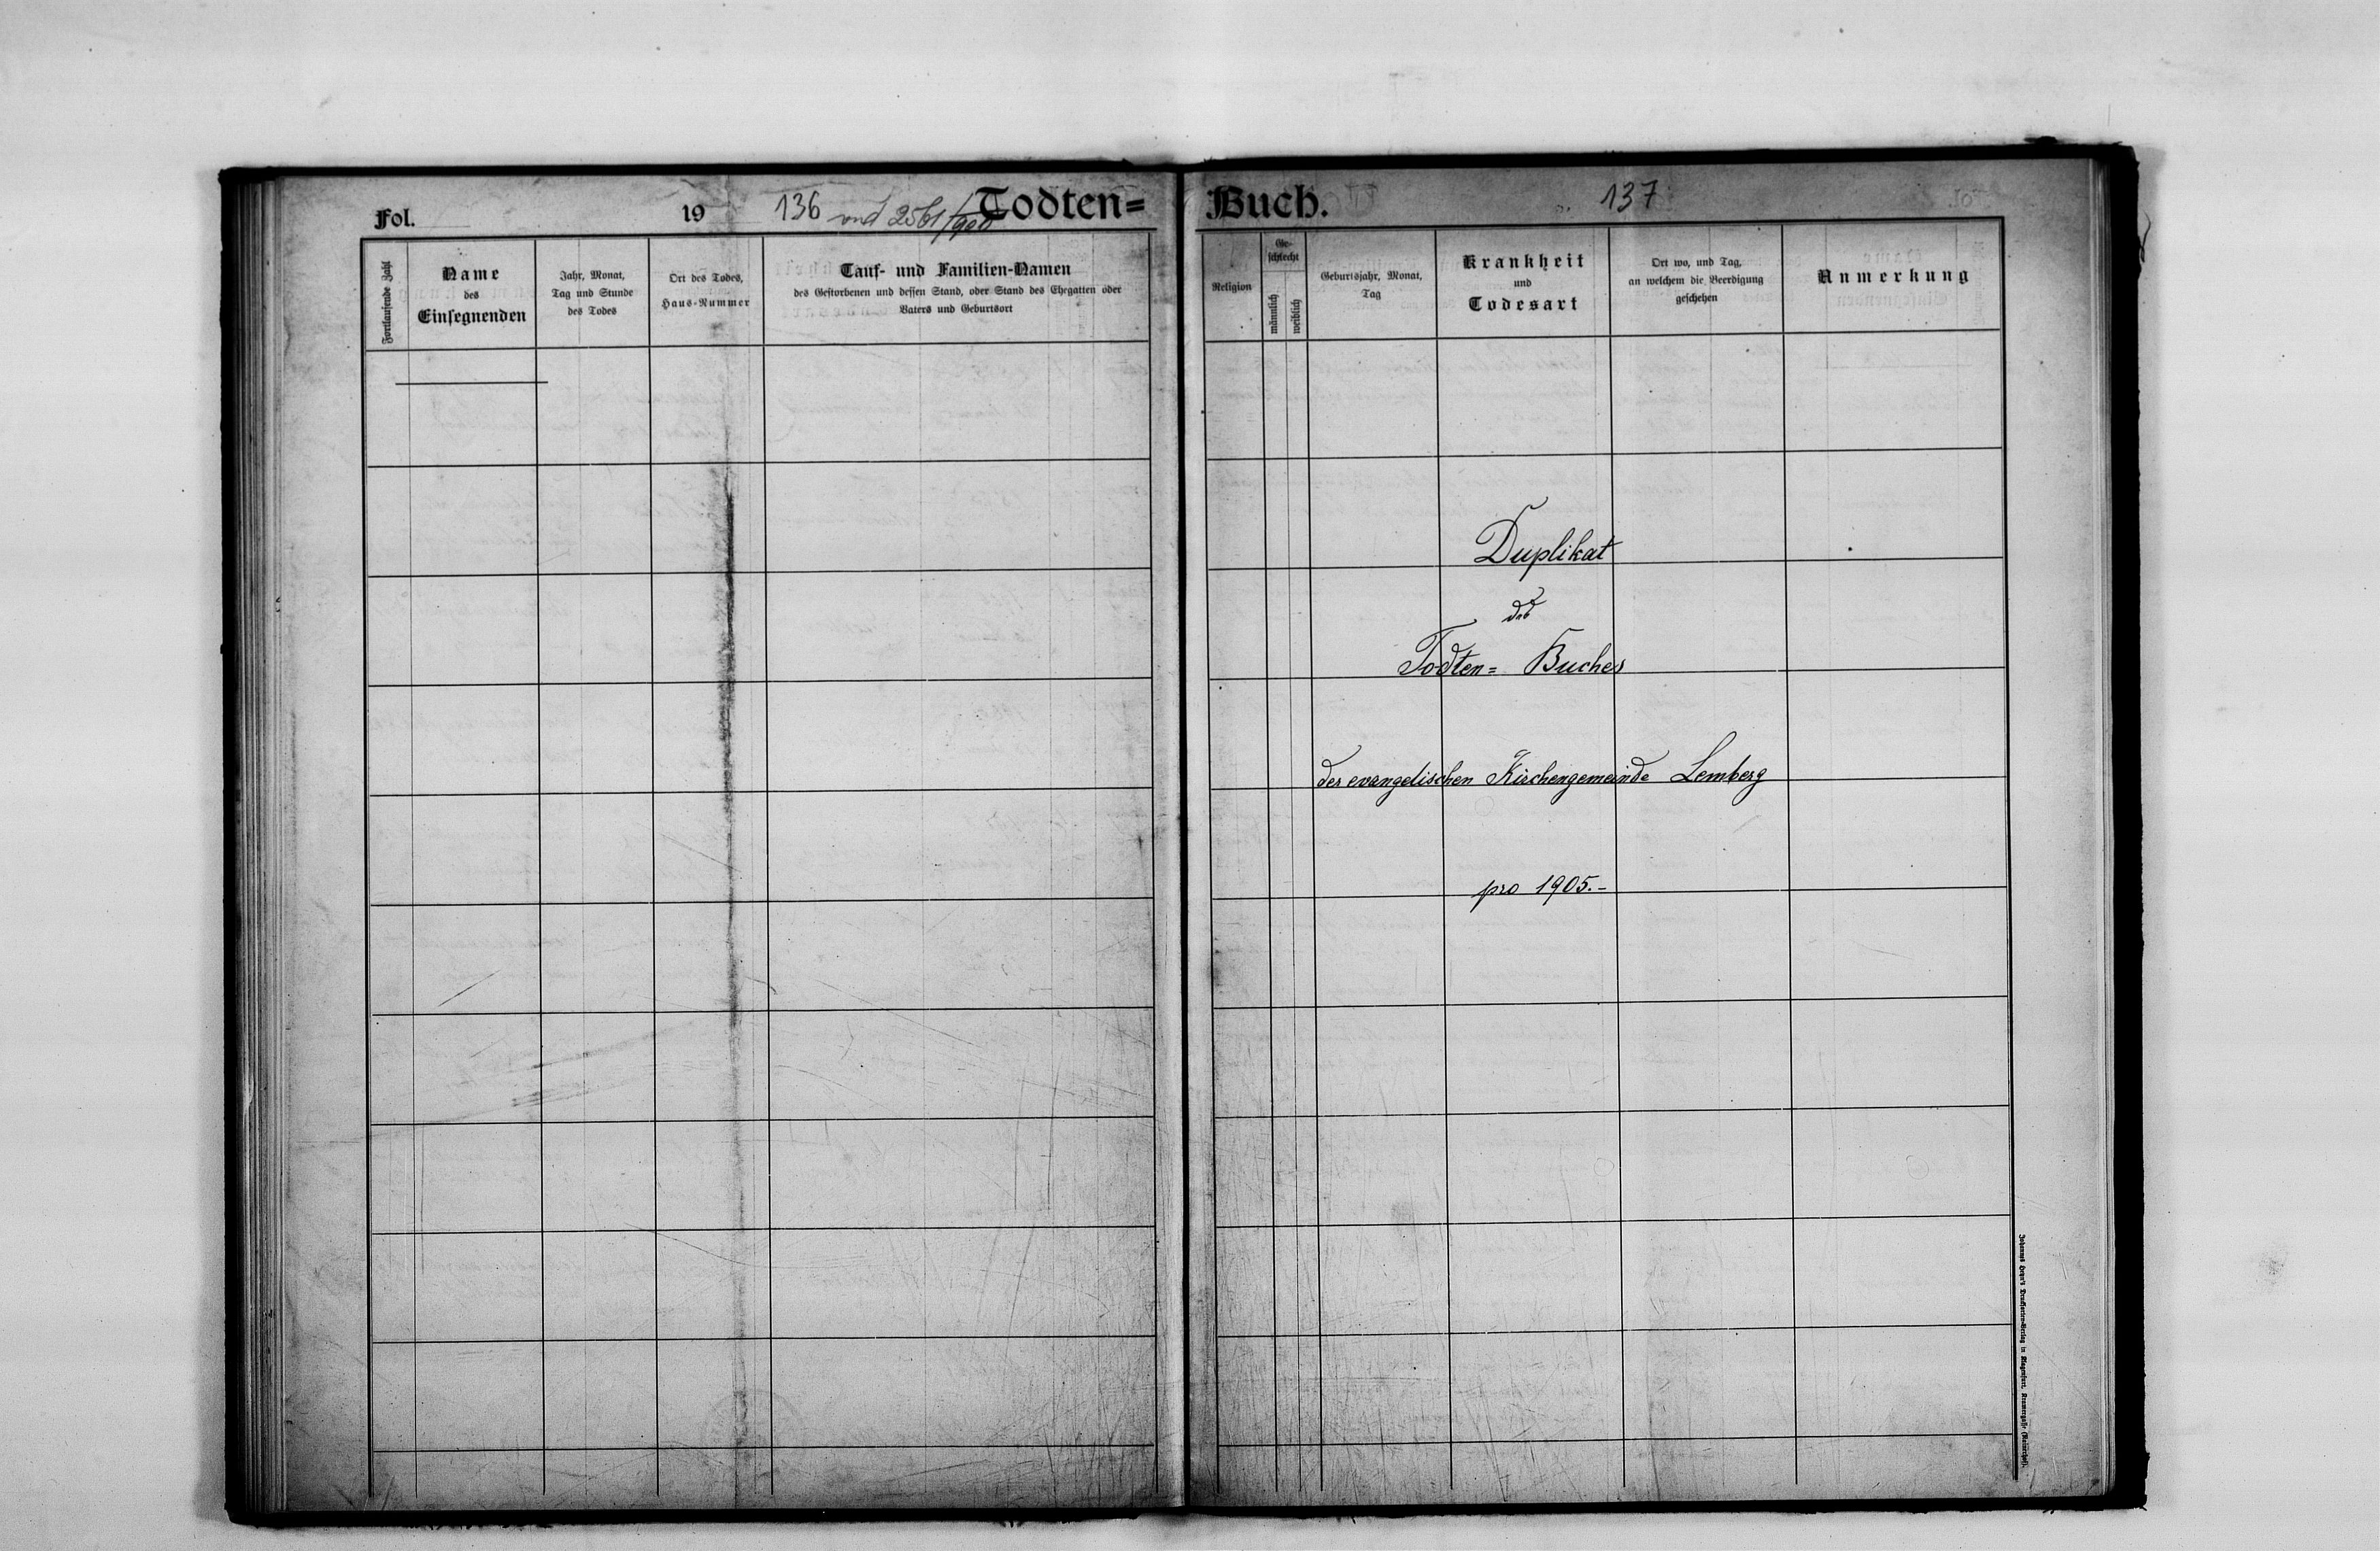 Fol. 19 136 Todten=
Fortlaufende Zahl
Name
des
Einsegnenden
Jahr, Monat,
Tag und Stunde
des Todes
Ort des Todes,
Haus-Nummer
Tauf- und Familien-Namen
des Gestorbenen und dessen Stand, oder Stand des Ehegatten oder
Vaters und Geburtsort
Buch. 137
Religion
Ge-
schlecht
männlich
weiblich
Geburtsjahr, Monat,
Tag
Krankheit
und
Todesart
Ort wo, und Tag,
an welchem die Beerdigung
geschehen
Anmerkung
Duplikat
des
Todten= Buches
der evangelischen Kirchengemeinde Lemberg
pro 1905.-